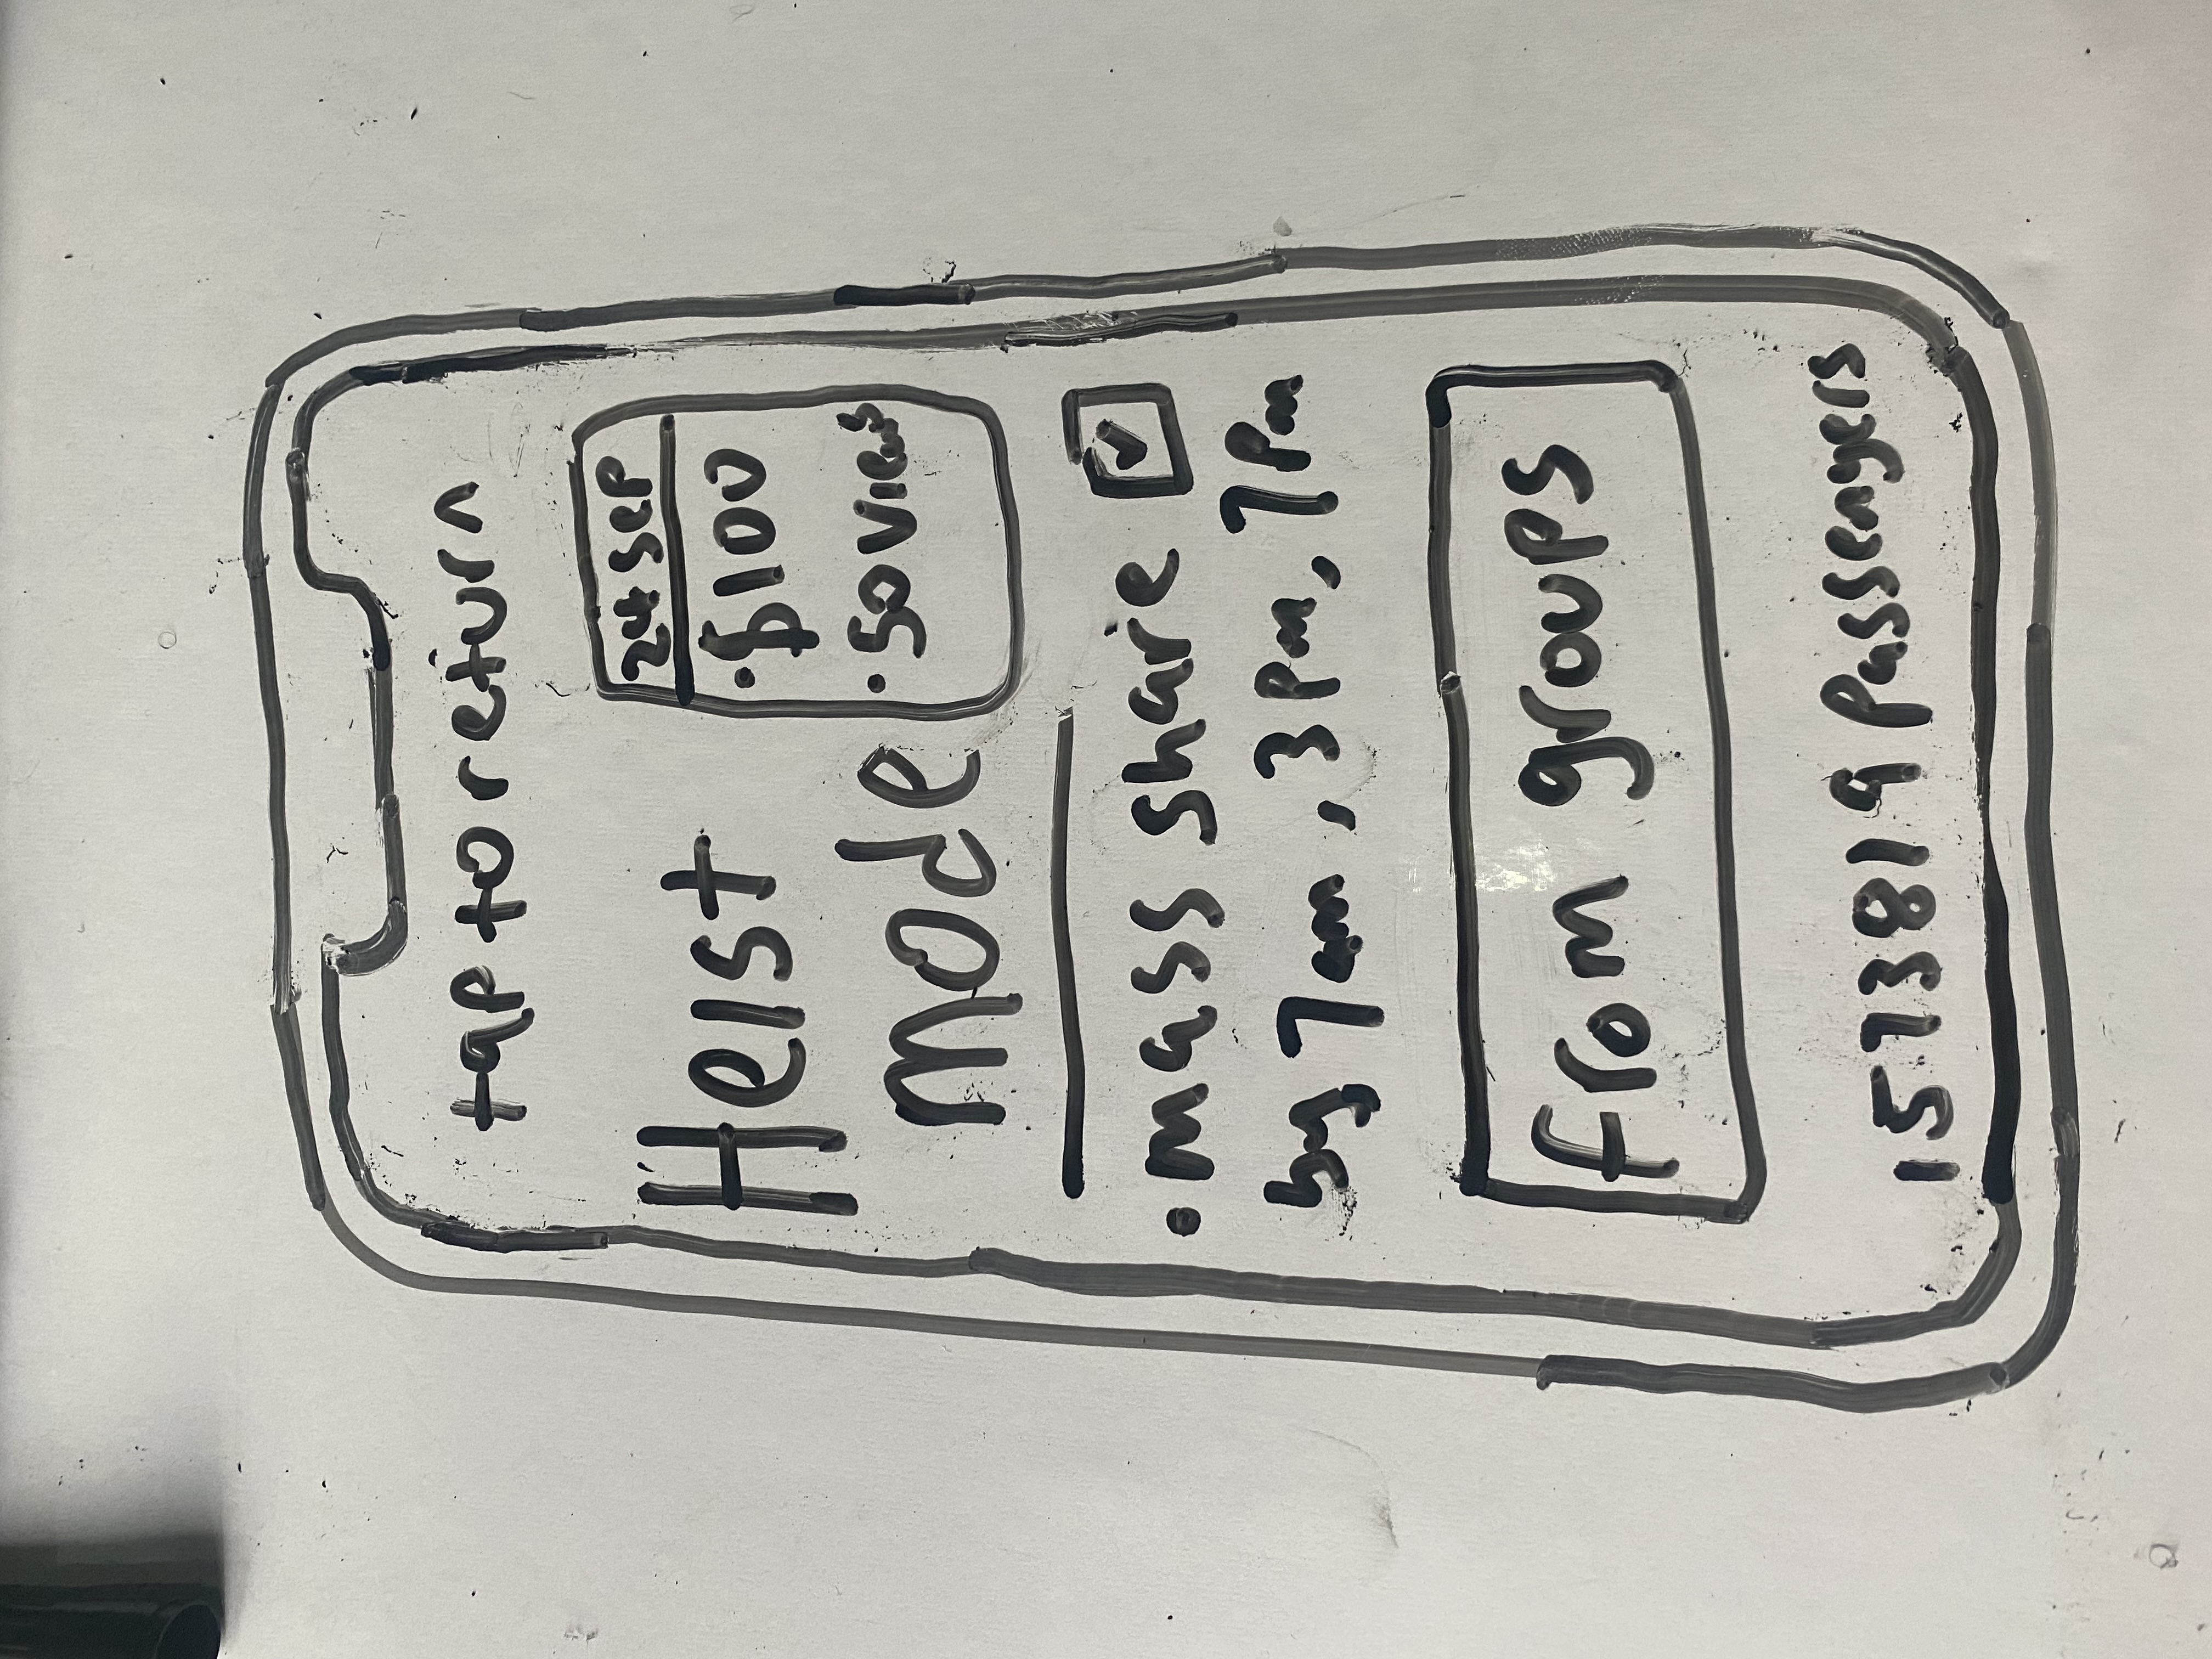 tap to return
Heist
mode
24 Sep
• $100
• 50 views
• mass share
by 7am, 3pm, 7pm
from groups
1573819 Passengers